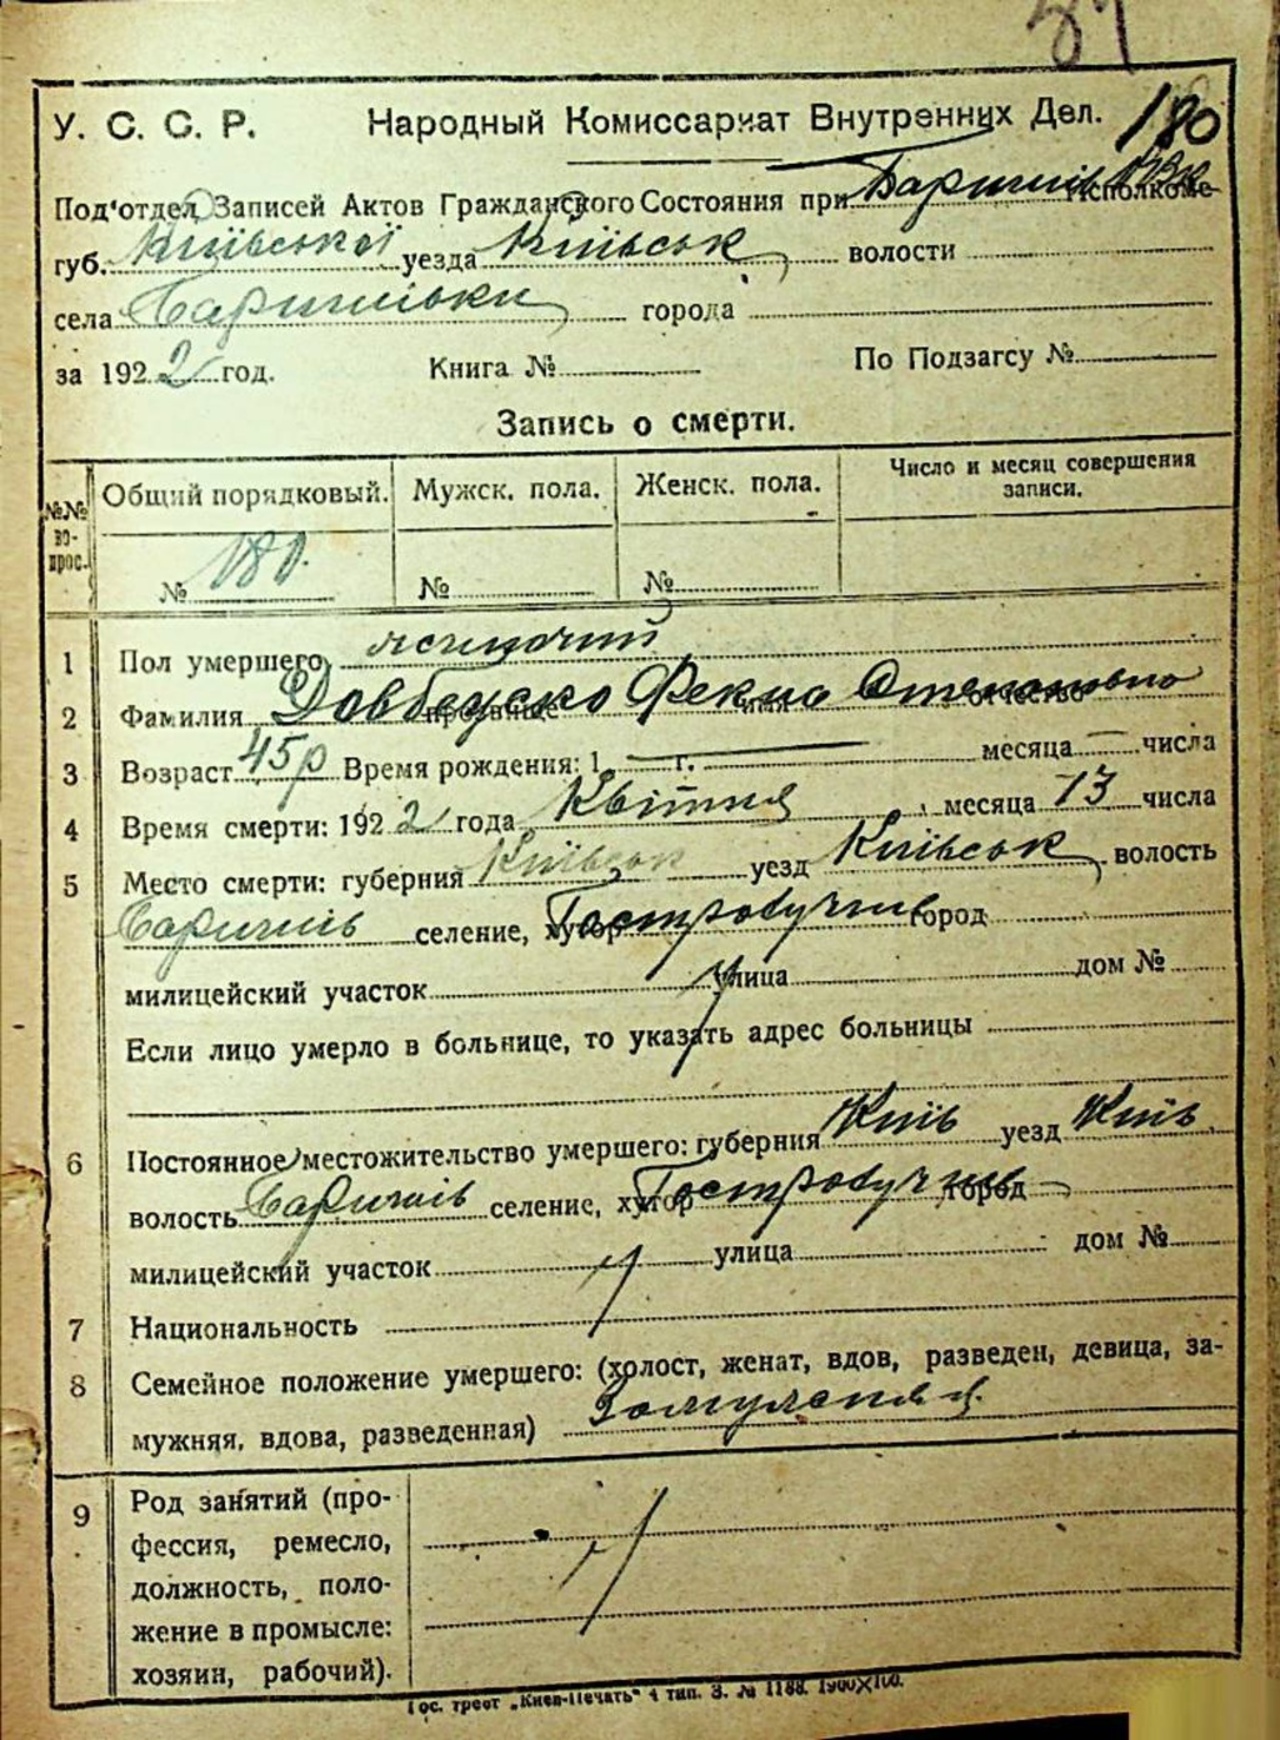 37
У. С. С. Р. Народный Комиссариат Внутренних Дел. 180
Под'отдел Записей Актов Гражданского Состояния при Баришів ВВК Исполкоме
губ. Київської уезда Київськ волости
села Баришівки города
за 1922 год. Книга № По Подзагсу №
Запись о смерти.
№№ вопрос. Общий порядковый. Мужск. пола. Женск. пола. Число и месяц совершения записи.
№ 180. № №
1 Пол умершего жіночий
2 Фамилия прозвище Фекла имя отчество
3 Возраст 45р Время рождения: 1 — г. — месяца — числа
4 Время смерти: 1922 года Квітня месяца 13 числа
5 Место смерти: губерния Київськ уезд Київськ волость
Баришів селение, хутор Гостролуччя город
милицейский участок улица дом №
Если лицо умерло в больнице, то указать адрес больницы
6 Постоянное местожительство умершего: губерния Київ уезд Київ
волость Баришів селение, хутор Гостролуччя город
милицейский участок улица дом №
7 Национальность
8 Семейное положение умершего: (холост, женат, вдов, разведен, девица, за-
мужняя, вдова, разведенная) Замужняя.
9 Род занятий (про-
фессия, ремесло,
должность, поло-
жение в промысле:
хозяин, рабочий).
Гос. трест „Киев-Печать" 4 тип. З. № 1188. 1900×100.